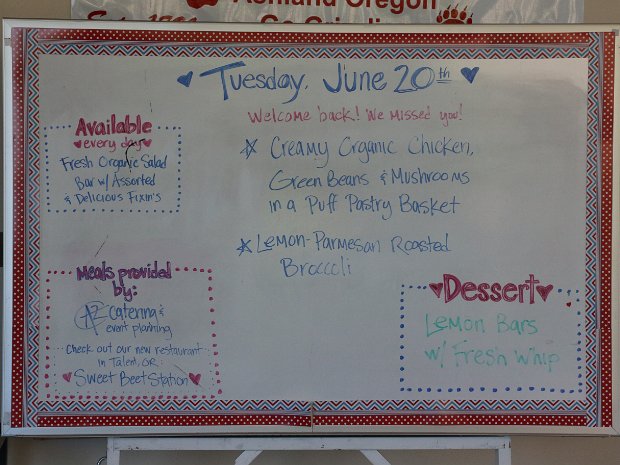 Ashland Oregon
Go Grizzlies
Tuesday, June 20th
Welcome back! We missed you!
Creamy Organic Chicken,
Green Beans & Mushrooms
in a Puff Pastry Basket
Lemon-Parmesan Roasted
Broccoli
Available
every day
Fresh Organic Salad
Bar w/ Assorted
& Delicious Fixin's
Meals provided
by:
AZ Catering &
event planning
Check out our new restaurant
in Talent, OR
Sweet Beet Station
Dessert
Lemon Bars
w/ Fresh Whip